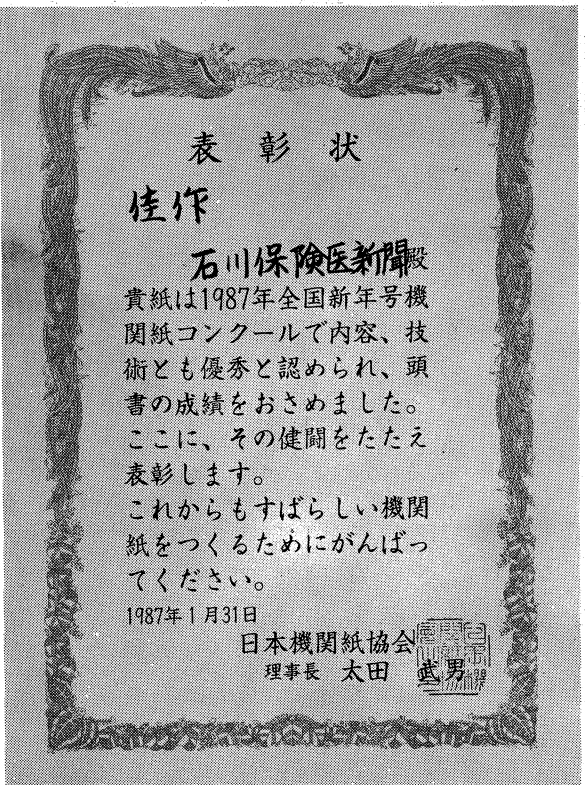 表彰状
佳作
石川保険医新聞殿
貴紙は1987年全国新年号機
関紙コンクールで内容、技
術とも優秀と認められ、頭
書の成績をおさめました。
ここに、その健闘をたたえ
表彰します。
これからもすばらしい機関
紙をつくるためにがんばっ
てください。
1987年1月31日
日本機関紙協会
理事長 太田 武男